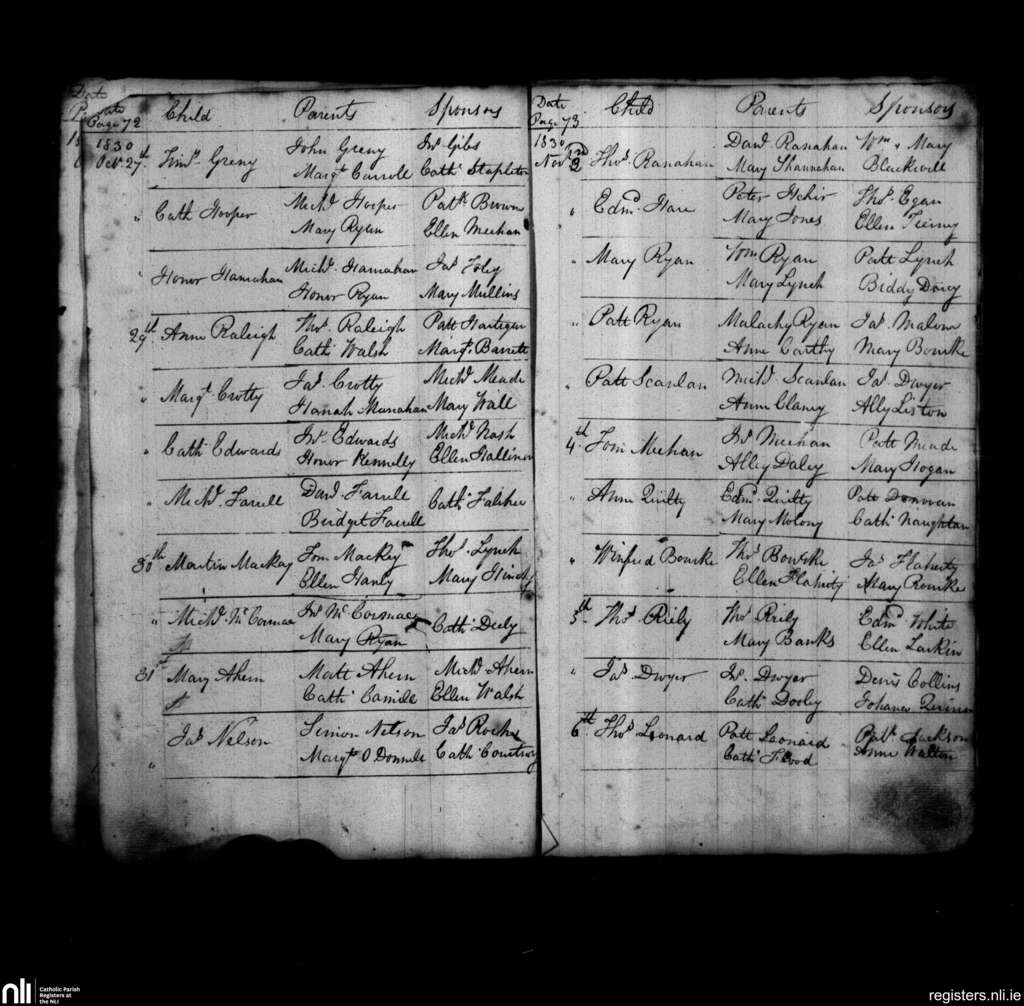 Date
Page 72 Child Parents Sponsors
1830
Octr 27th Timy. Greny John Greny Jno. Gibs
Margt Carroll Cath: Stapleton
" Cath Hooper Michd Hooper Patk Brown
Mary Ryan Ellen Meehan
" Honor Hanrahan Michd. Hanrahan Jas Foley
Honor Ryan Mary Mullins
29th. Anne Raleigh Thos. Raleigh Patt Hartigan
Cath: Walsh Margt. Barrett
" Margt. Crotty Jas. Crotty Michd. Meade
Hanah Manahan Mary Wall
" Cath: Edwards Jno. Edwards Michd. Nash
Honor Kennelly Ellen Hallinan
" Michd. Farrell Dand. Farrell Cath:
Bridget Farrell
30th Martin Mackay Tom Mackey Thos. Lynch
Ellen Hanly Mary
" Michd. McCormac Jno. McCormac Cath: Deely
Mary Ryan
31st Mary Ahern Matt Ahern Michd Ahern
Cath: Ellen Walsh
" Jas Nelson Simon Nelson Jas Roche
Margt. O Donnell Cath: Courtney
Date
Page 73 Child Parents Sponsors
1830
Novr 2nd Thos. Ranahan Dand. Ranahan Wm & Mary
Mary Shannahan Blackwell
" Edmd. Hare Peter Hehir Thos. Egan
Mary Jones Ellen Tierny
" Mary Ryan Wm Ryan Patt Lynch
Mary Lynch Biddy Darcy
" Patt Ryan Malachy Ryan Jas. Malone
Anne Carthy Mary Bourke
" Patt Scanlan Michd. Scanlan Jas. Dwyer
Anne Clancy Ally Liston
4th. Tom Meehan Jno. Meehan Patt Meade
Alley Daley Mary Hogan
" Anne Quilty Edmd. Quilty Patt Donovan
Mary Molony Cath: Naughtan
" Winfred Bourke Thos. Bourke Jas Flaherty
Ellen Flaherty Mary Rourke
5th. Thos. Riely Thos Riely Edmd. White
Mary Banks Ellen Larkin
" Jas. Dwyer Jno. Dwyer Denis Collins
Cath: Dooley Johanes
6th. Thos Leonard Patt Leonard Patk. Jackson
Cath: Flood Anne Walton
nli
Catholic Parish
Registers at
the NLI
registers.nli.ie